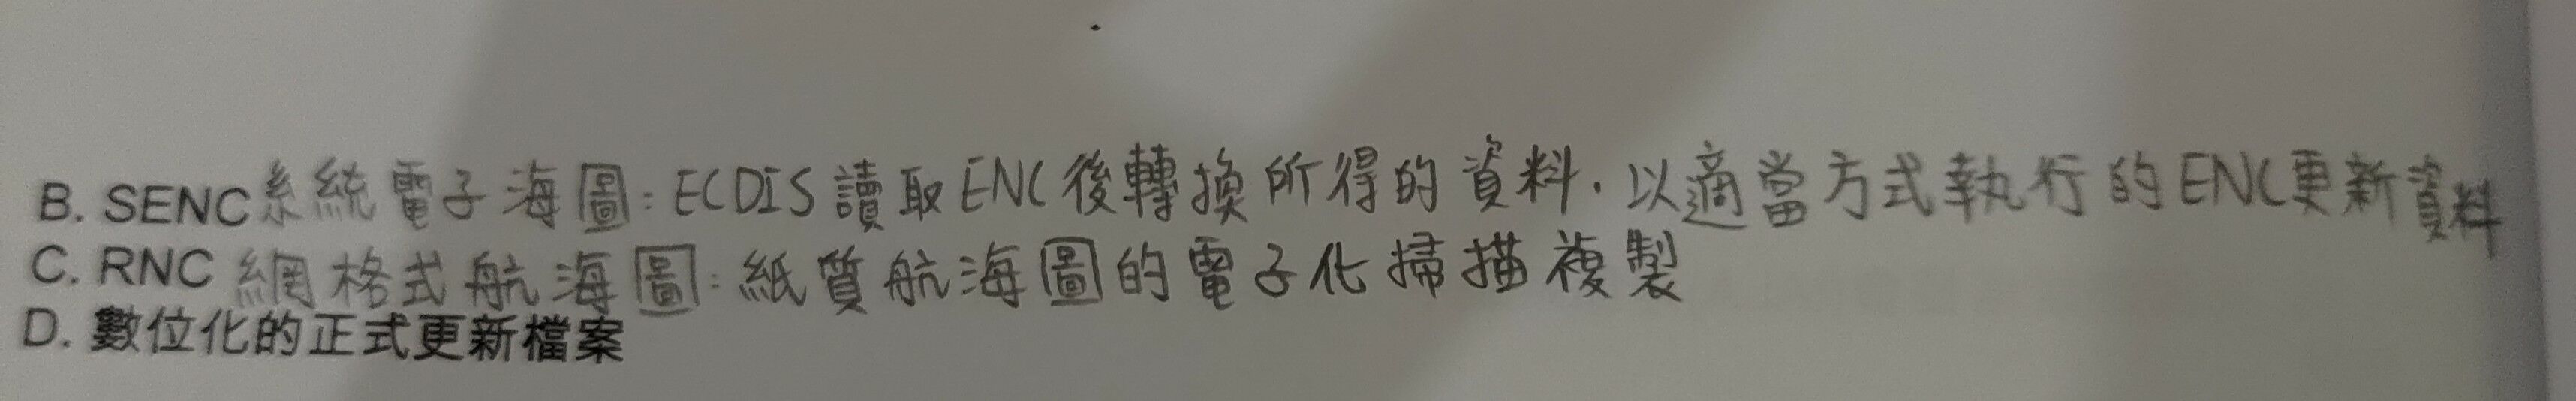 B. SENC系統電子海圖:ECDIS讀取ENC後轉換所得的資料.以適當方式執行的ENC更新資料
C. RNC 網格式航海圖:紙質航海圖的電子化掃描複製
D. 數位化的正式更新檔案